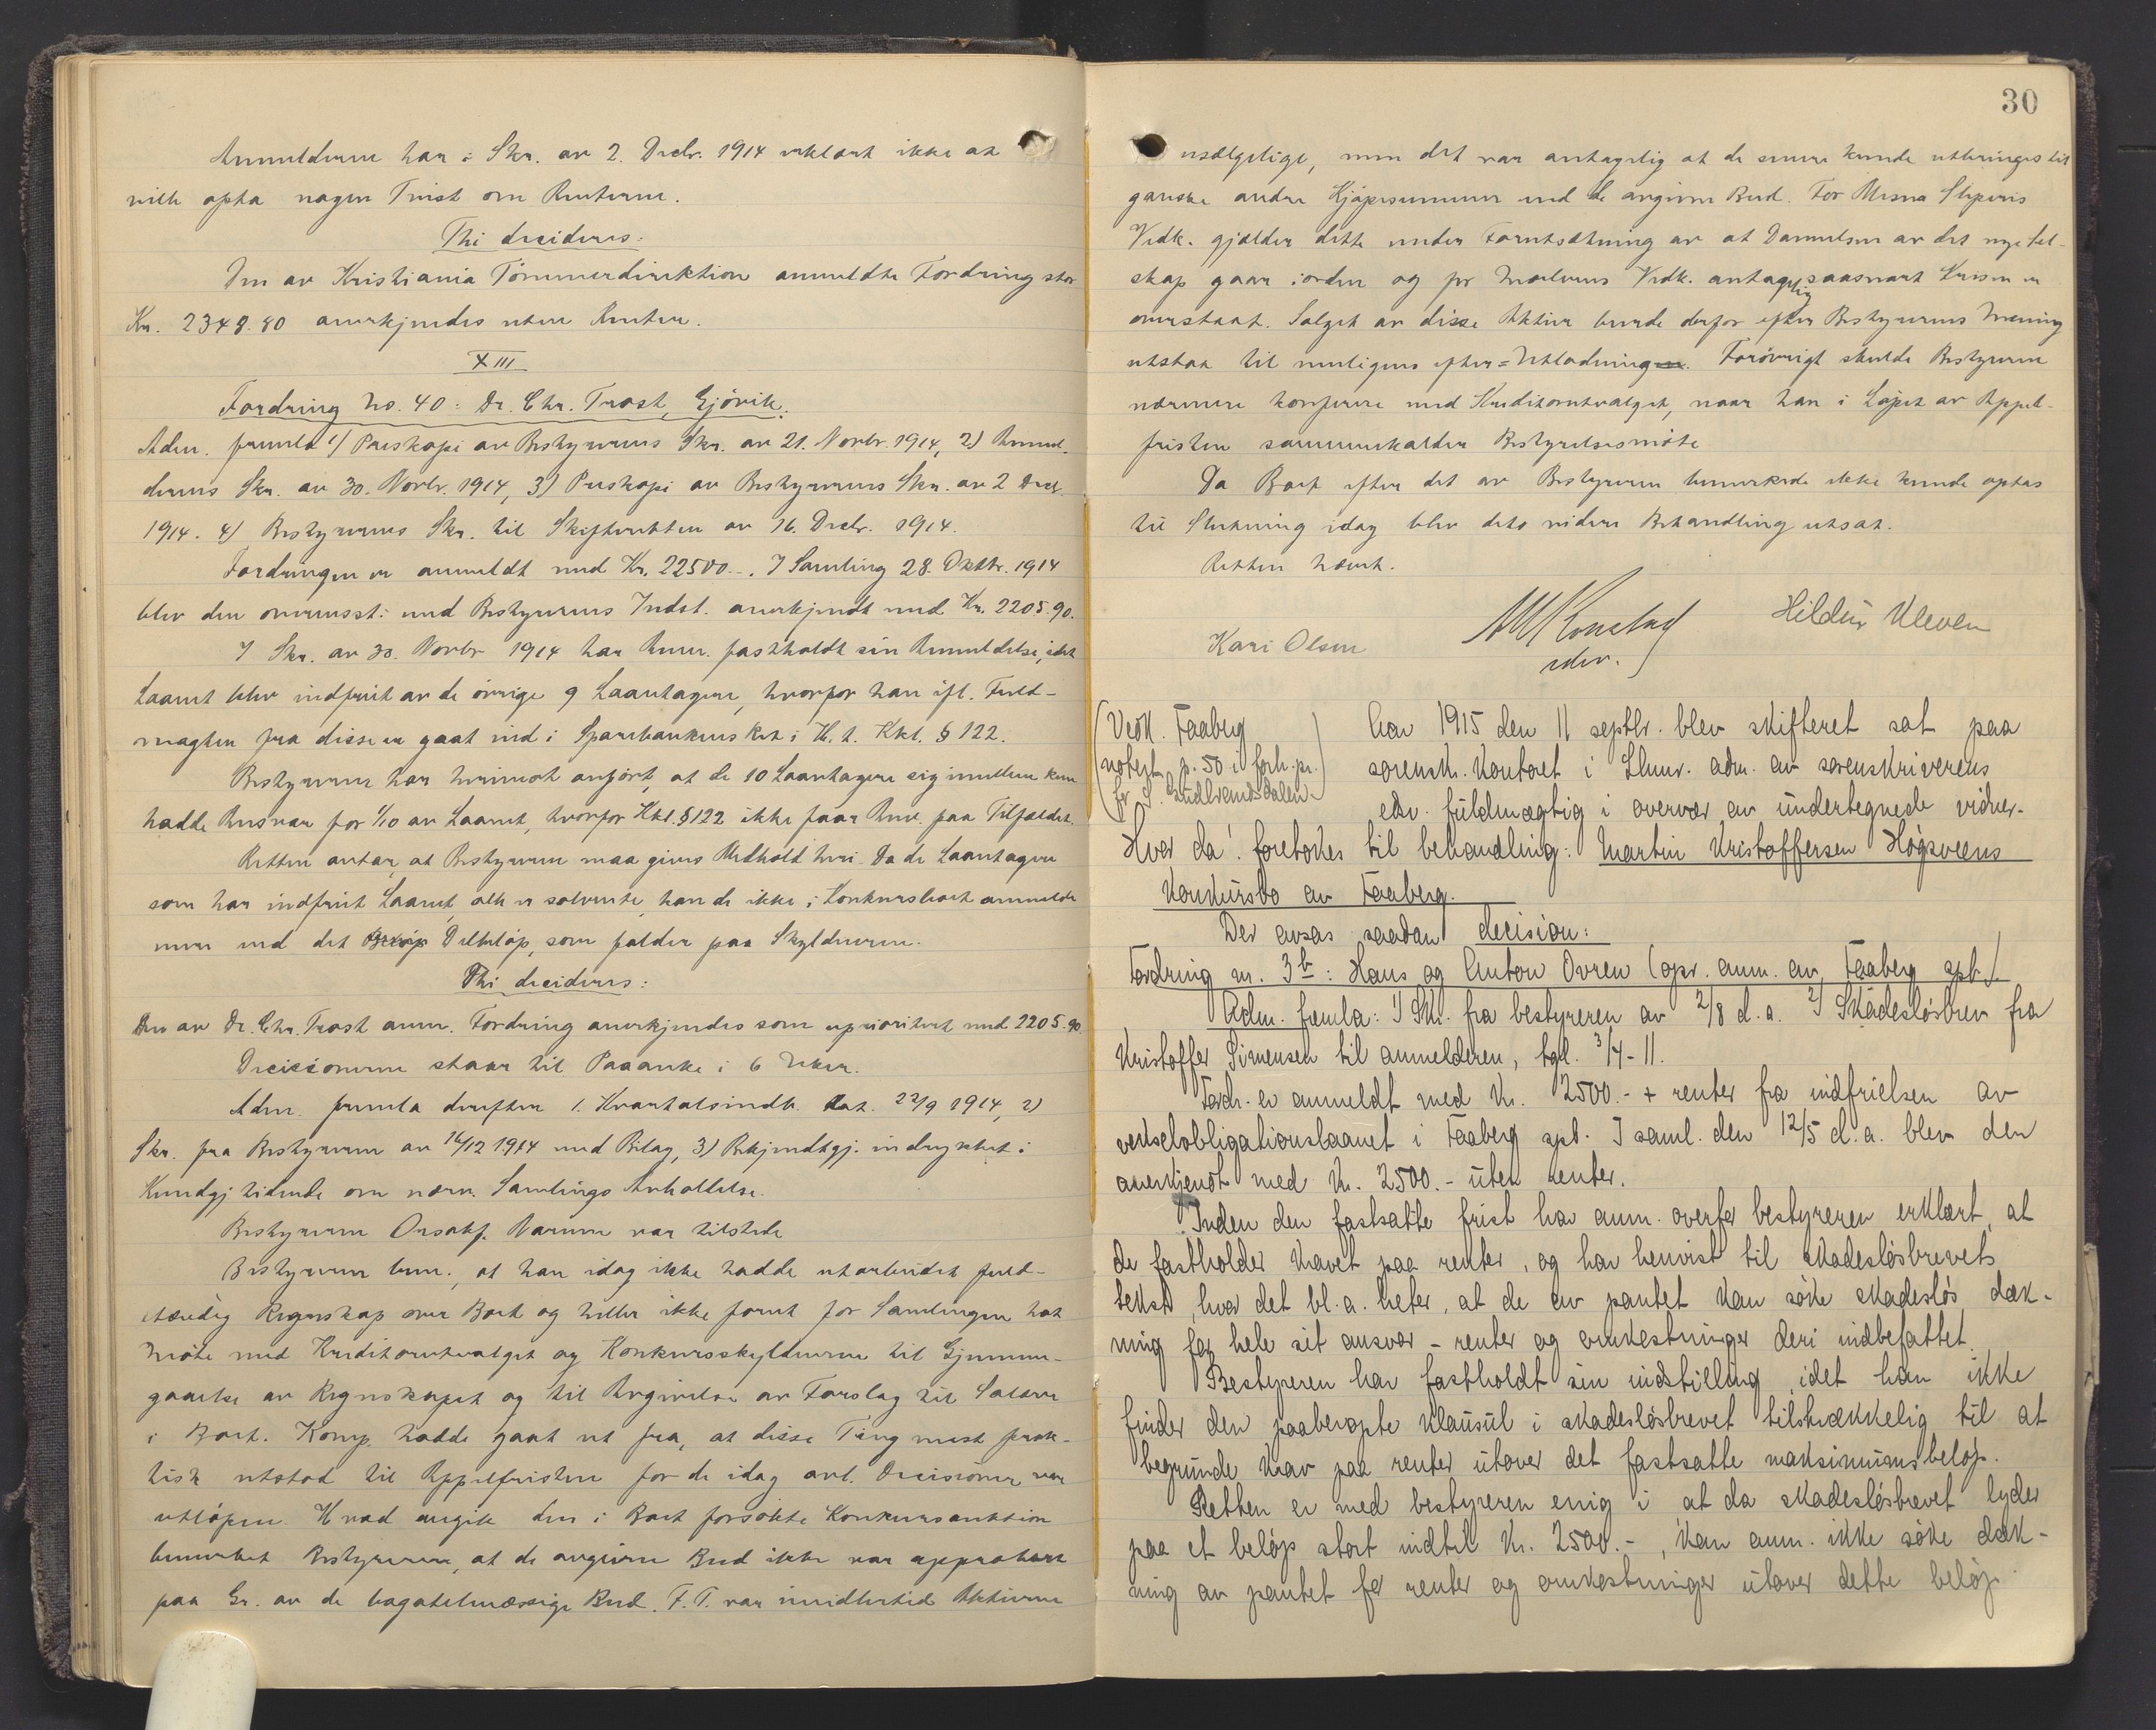 Anmelderne har i Skr. av 2. Decbr. 1914 erklært ikke at
ville opta nogen Tvist om Renterne.
Thi decideres:
Den av Kristiania Tömmerdirektion anmeldte Fordring stor
Kr. 2348.80 anerkjendes uten Renter.
XIII
Fordring No. 40: Dr. Chr. Trost, Gjövik.
Adm. fremla 1) Preskopi av Bestyrerens Skr. av 21. Novbr. 1914, 2) Anmel-
derens Skr. av 30. Novbr. 1914, 3) Preskopi av Bestyrerens Skr. av 2 Decb.
1914. 4) Bestyrerens Skr. til Skifteretten av 16. Decbr. 1914.
Fordringen er anmeldt med Kr. 22500.-. I Samling 28. Oktbr. 1914
blev den overensst. med Bestyrerens Indst. anerkjendt med Kr. 2205.90.
I Skr. av 30. Novbr 1914 har Anm. fastholdt sin Anmeldelse, idet
Laanet blev indfriet av de övrige 9 Laantagere, hvorfor han ifl. Fuld-
magten fra disse er gaat ind i Sparebankens Ret i H. t. Kkl. § 122.
Bestyreren har herimot anfört, at de 10 Laantagere sig imellem kun
hadde Ansvar for 1/10 av Laanet, hvorfor Kkl. § 122 ikke faar Anv. paa Tilfældet.
Retten antar, at Bestyreren maa gives Medhold heri. Da de Laantagere
som har indfriet Laanet, alle er solvente, kan de ikke i Konkursboet anmelde
mer end det Delbelöp, som falder paa Skyldneren.
Thi decideres:
Den av Dr. Chr. Trost anm. Fordring anerkjendes som uprioritert med 2205.90.
Decisionerne staar til Paaanke i 6 Uker.
Adm. fremla derefter 1. Kvartalsindb. dat. 22/9 1914, 2)
Skr. fra Bestyreren av 16/12 1914 med Bilag, 3) Bekjendtgj. indrykket i
Kundgj tidende om nærv. Samlings Avholdelse.
Bestyreren Overrettssakf. Narum var tilstede
Bestyreren bem., at han idag ikke hadde utarbeidet fuld-
stændig Regnskap over Boet og heller ikke forut for Samlingen hat
Möte med Kreditorutvalget og Konkursskyldneren til Gjennem-
gaaelse av Regnskapet og til Avgivelse av Forslag til Salære
i Boet. Komp. hadde gaat ut fra, at disse Ting mest prak-
tisk utstod til Appelfristen for de idag avl. Decisioner var
utlöpen. Hvad angik den i Boet forsökte Konkursauktion
bemerket Bestyreren, at de avgivne Bud ikke var approbert
paa Gr. av de bagatelmæssige Bud. F. T. var imidlertid Aktiverne
30
usælgelige, men det var antagelig at de senere kunde utbringes til
ganske andre Kjöpesummer end de avgivne Bud. For Mesna Sliperis
Vedk. gjælder dette under Forutsætning av at Dannelsen av det nye Sel-
skap gaar iorden og for Mælums Vedk. antagelig saasnart Krisen er
overstaat. Salget av disse Aktier burde derfor efter Bestyrerens Mening
utstaa til muligens efter=Utlodning. Forövrigt skulde Bestyreren
nærmere konferere med Kreditorutvalget, naar han i Löpet av Appel-
fristen sammenkalder Bestyrelsesmöte
Da Boet efter det av Bestyreren bemerkede ikke kunde optas
til Slutning idag blev dets videre Behandling utsat.
Retten hævet.
Kari Olsen
edv.
Hildur Kleven
(Vedk. Faaberg
notert p. 50 i forh.pr.
for S. Gudbrandsdalen.)
Aar 1915 den 11 septbr. blev skifteret sat paa
sorenskr. kontoret i Lhmr. adm. av sorenskriverens
edsv. fuldmægtig i overvær av undertegnede vidner.
Hvor da: foretokes til behandling: Martin Kristoffersen Högsveens
konkursbo av Faaberg.
Der avsas saadan decision:
Fordring nr. 3b: Hans og Anton Ovren (opr. anm. av Faaberg spb.)
Adm. fremla: 1) Skr. fra bestyreren av 2/8 d.a. 2) Skadeslösbrev fra
Kristoffer Simensen til anmelderen, tgl. 3/4-11.
Fordr. er anmeldt med kr. 2500.- + renter fra indfrielsen av
vekselobligationslaanet i Faaberg spb. I saml. den 12/5 d.a. blev den
anerkjendt med kr. 2500.- uten renter.
Inden den fastsatte frist har anm. overfor bestyreren erklært, at
de fastholder kravet paa renter, og har henvist til skadeslösbrevets
tekst, hvor det bl.a. heter, at de av pantet kan söke skadeslös dæk-
ning for hele sit ansvar - renter og omkostninger deri indbefattet.
Bestyreren har fastholdt sin indstilling, idet han ikke
finder den paaberopte klausul i skadeslösbrevet tilstrækkelig til at
begrunde krav paa renter utover det fastsatte maksimumsbelöp.
Retten er med bestyreren enig i at da skadeslösbrevet lyder
paa et belöp stort indtil kr. 2500.-, kan anm. ikke söke dæk-
ning av pantet for renter og omkostninger utover dette belöp.